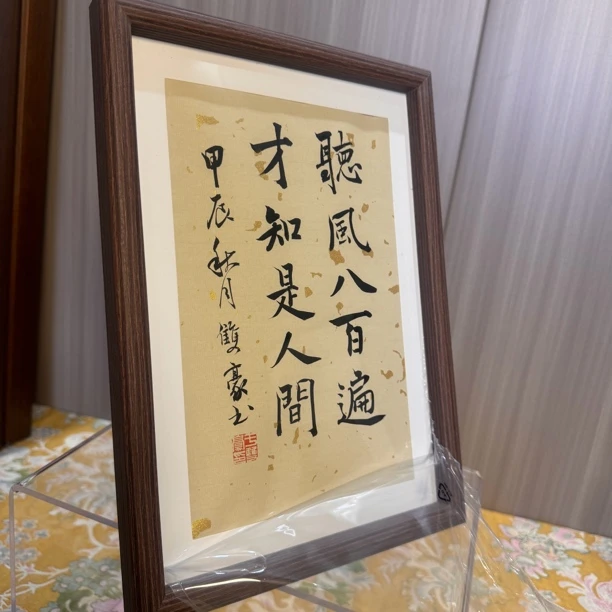 聽風八百遍
才知是人間
甲辰秋月雙豪书